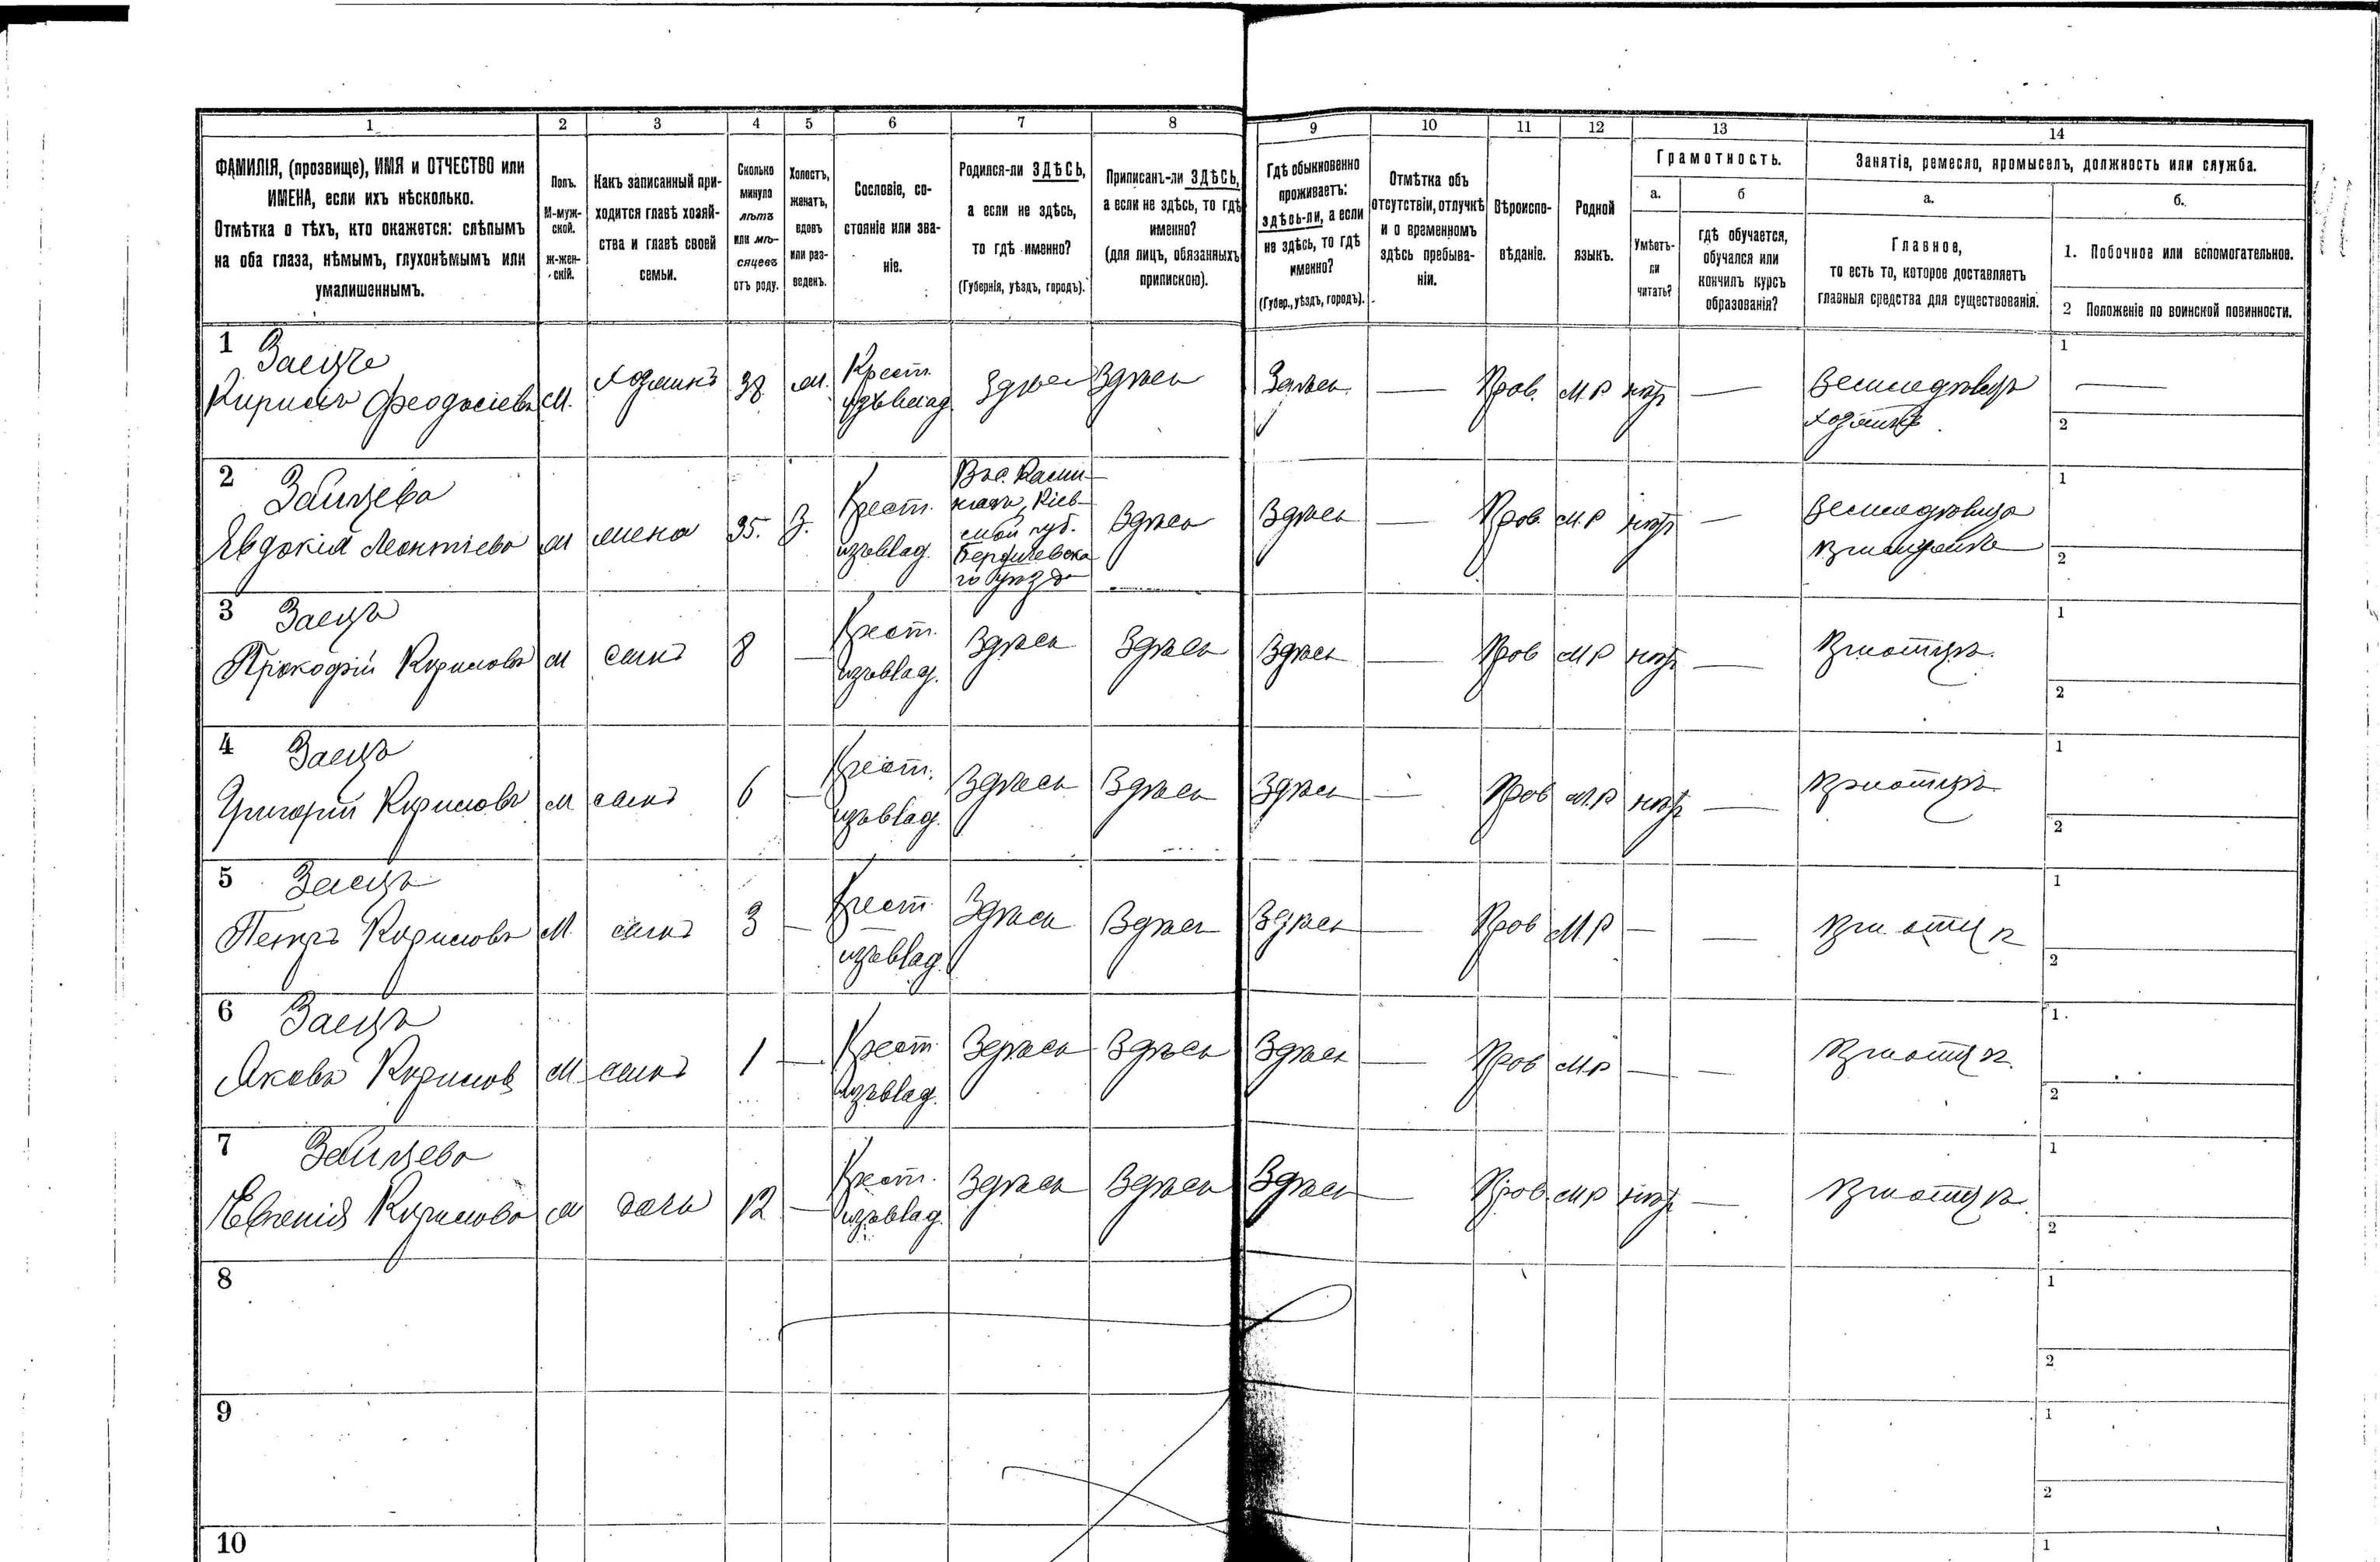 1 2 3 4 5 6 7 8 9 10 11 12 13 14
ФАМИЛІЯ, (прозвище), ИМЯ и ОТЧЕСТВО или
ИМЕНА, если ихъ нѣсколько.
Отмѣтка о тѣхъ, кто окажется: слѣпымъ
на оба глаза, нѣмымъ, глухонѣмымъ или
умалишеннымъ.
Полъ.
М-муж-
ской.
Ж-жен-
скій.
Какъ записанный при-
ходится главѣ хозяй-
ства и главѣ своей
семьи.
Сколько
минуло
лѣтъ
или мѣ-
сяцевъ
отъ роду.
Холостъ,
женатъ,
вдовъ
или раз-
веденъ.
Сословіе, со-
стояніе или зва-
ніе.
Родился-ли ЗДѢСЬ,
а если не здѣсь,
то гдѣ именно?
(Губернія, уѣздъ, городъ).
Приписанъ-ли ЗДѢСЬ,
а если не здѣсь, то гдѣ
именно?
(для лицъ, обязанныхъ
припискою).
Гдѣ обыкновенно
проживаетъ:
здѣсь-ли, а если
не здѣсь, то гдѣ
именно?
(Губер., уѣздъ, городъ).
Отмѣтка объ
отсутствіи, отлучкѣ
и о временномъ
здѣсь пребыва-
ніи.
Вѣроиспо-
вѣданіе.
Родной
языкъ.
Грамотность.
а.
Умѣетъ-
ли
читать?
б
гдѣ обучается,
обучался или
кончилъ курсъ
образованія?
Занятіе, ремесло, промыселъ, должность или служба.
а.
Главное,
то есть то, которое доставляетъ
главныя средства для существованія.
б.
1. Побочное или вспомогательное.
2 Положеніе по воинской повинности.
1 Заецъ
Кирилъ Феодосіевъ М. хозяинъ 38 Ж. Крест. изъ влад. Здѣсь Здѣсь Здѣсь — Прав. М.Р нѣтъ — Земледѣлецъ
хозяинъ
1 —
2
2 Зайцева
Евдокія Леонтіева ж жена 35. З. Крест. изъ влад.
Кіев-
ской губ.
Бердичевска
го уѣзда
Здѣсь Здѣсь — Прав. М.Р нѣтъ —
1
2
3 Заецъ
Прокофій Кириловъ м сынъ 8 — Крест. изъ влад. Здѣсь Здѣсь Здѣсь — Прав М Р нѣтъ — При отцѣ
1
2
4 Заецъ
Григорій Кириловъ м сынъ 6 — Крест. изъ влад. Здѣсь Здѣсь Здѣсь — Прав М.Р нѣтъ — При отцѣ
1
2
5 Заецъ
Петръ Кириловъ М сынъ 3 — Крест. изъ влад. Здѣсь Здѣсь Здѣсь — Прав М Р — — При отцѣ
1
2
6 Заецъ
Яковъ Кирилов М сынъ 1 — Крест изъ влад. Здѣсь Здѣсь Здѣсь — Прав М.Р — — При отцѣ
1
2
7 Зайцева
Евгенія Кирилова ж дочь 12 — Крест. изъ влад. Здѣсь Здѣсь Здѣсь — Прав. М.Р нѣтъ — При отцѣ
1
2
8
1
2
9
1
2
10
1